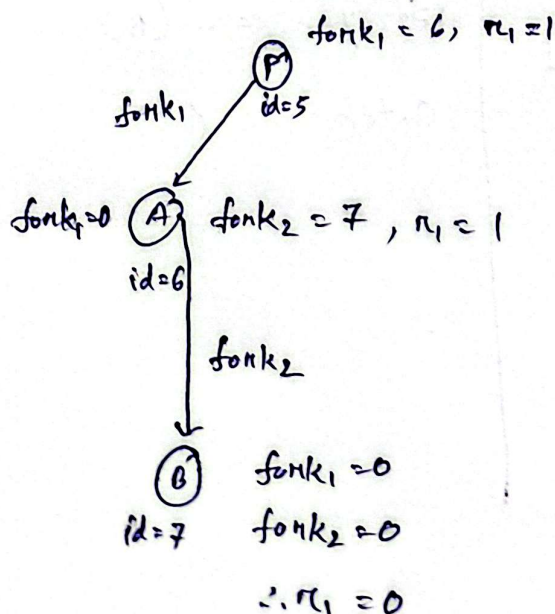 fork₁ = 6, r₁ = 1
P
id=5
fork₁
fork₁=0 A fork₂ = 7, r₁ = 1
id=6
fork₂
B fork₁ = 0
id=7 fork₂ = 0
∴ r₁ = 0